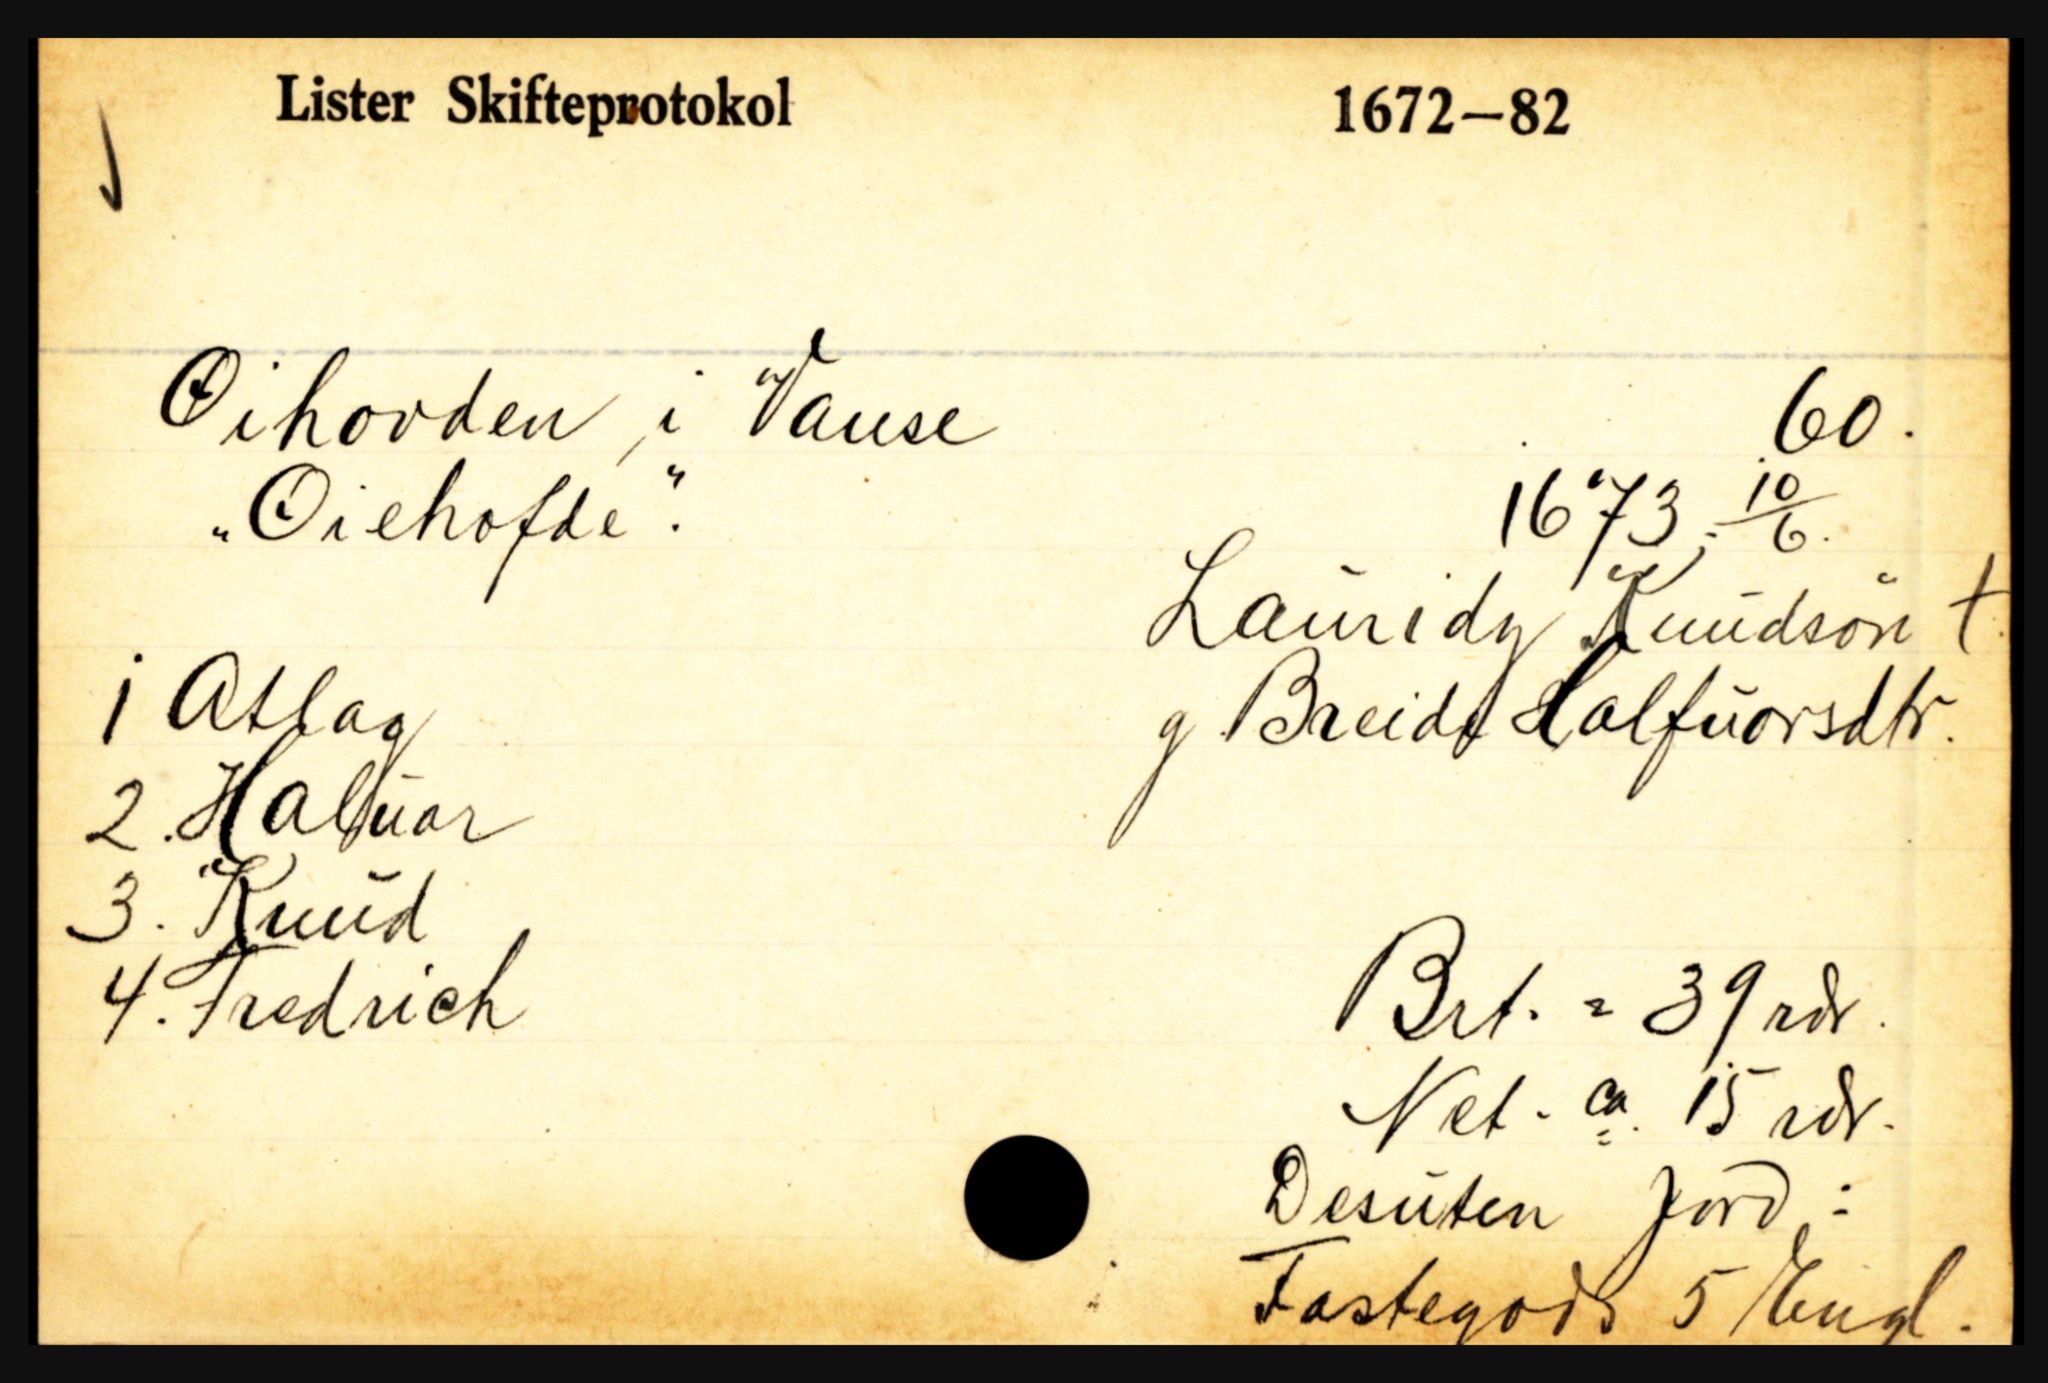 Lister Skifteprotokol 1672–82
Øihovden i Vanse 60.
„Øiehofde“. 1673 - 10/6.
Lauridz Knudsön †.
1 Atlag g. Breidt Halfuorsdtr.
2. Haluor
3. Knud
4. Fredrich Brt. = 39 rdr.
Net. ca. 15 rdr.
Desuten Jord :
Fastegods 5 Engl.